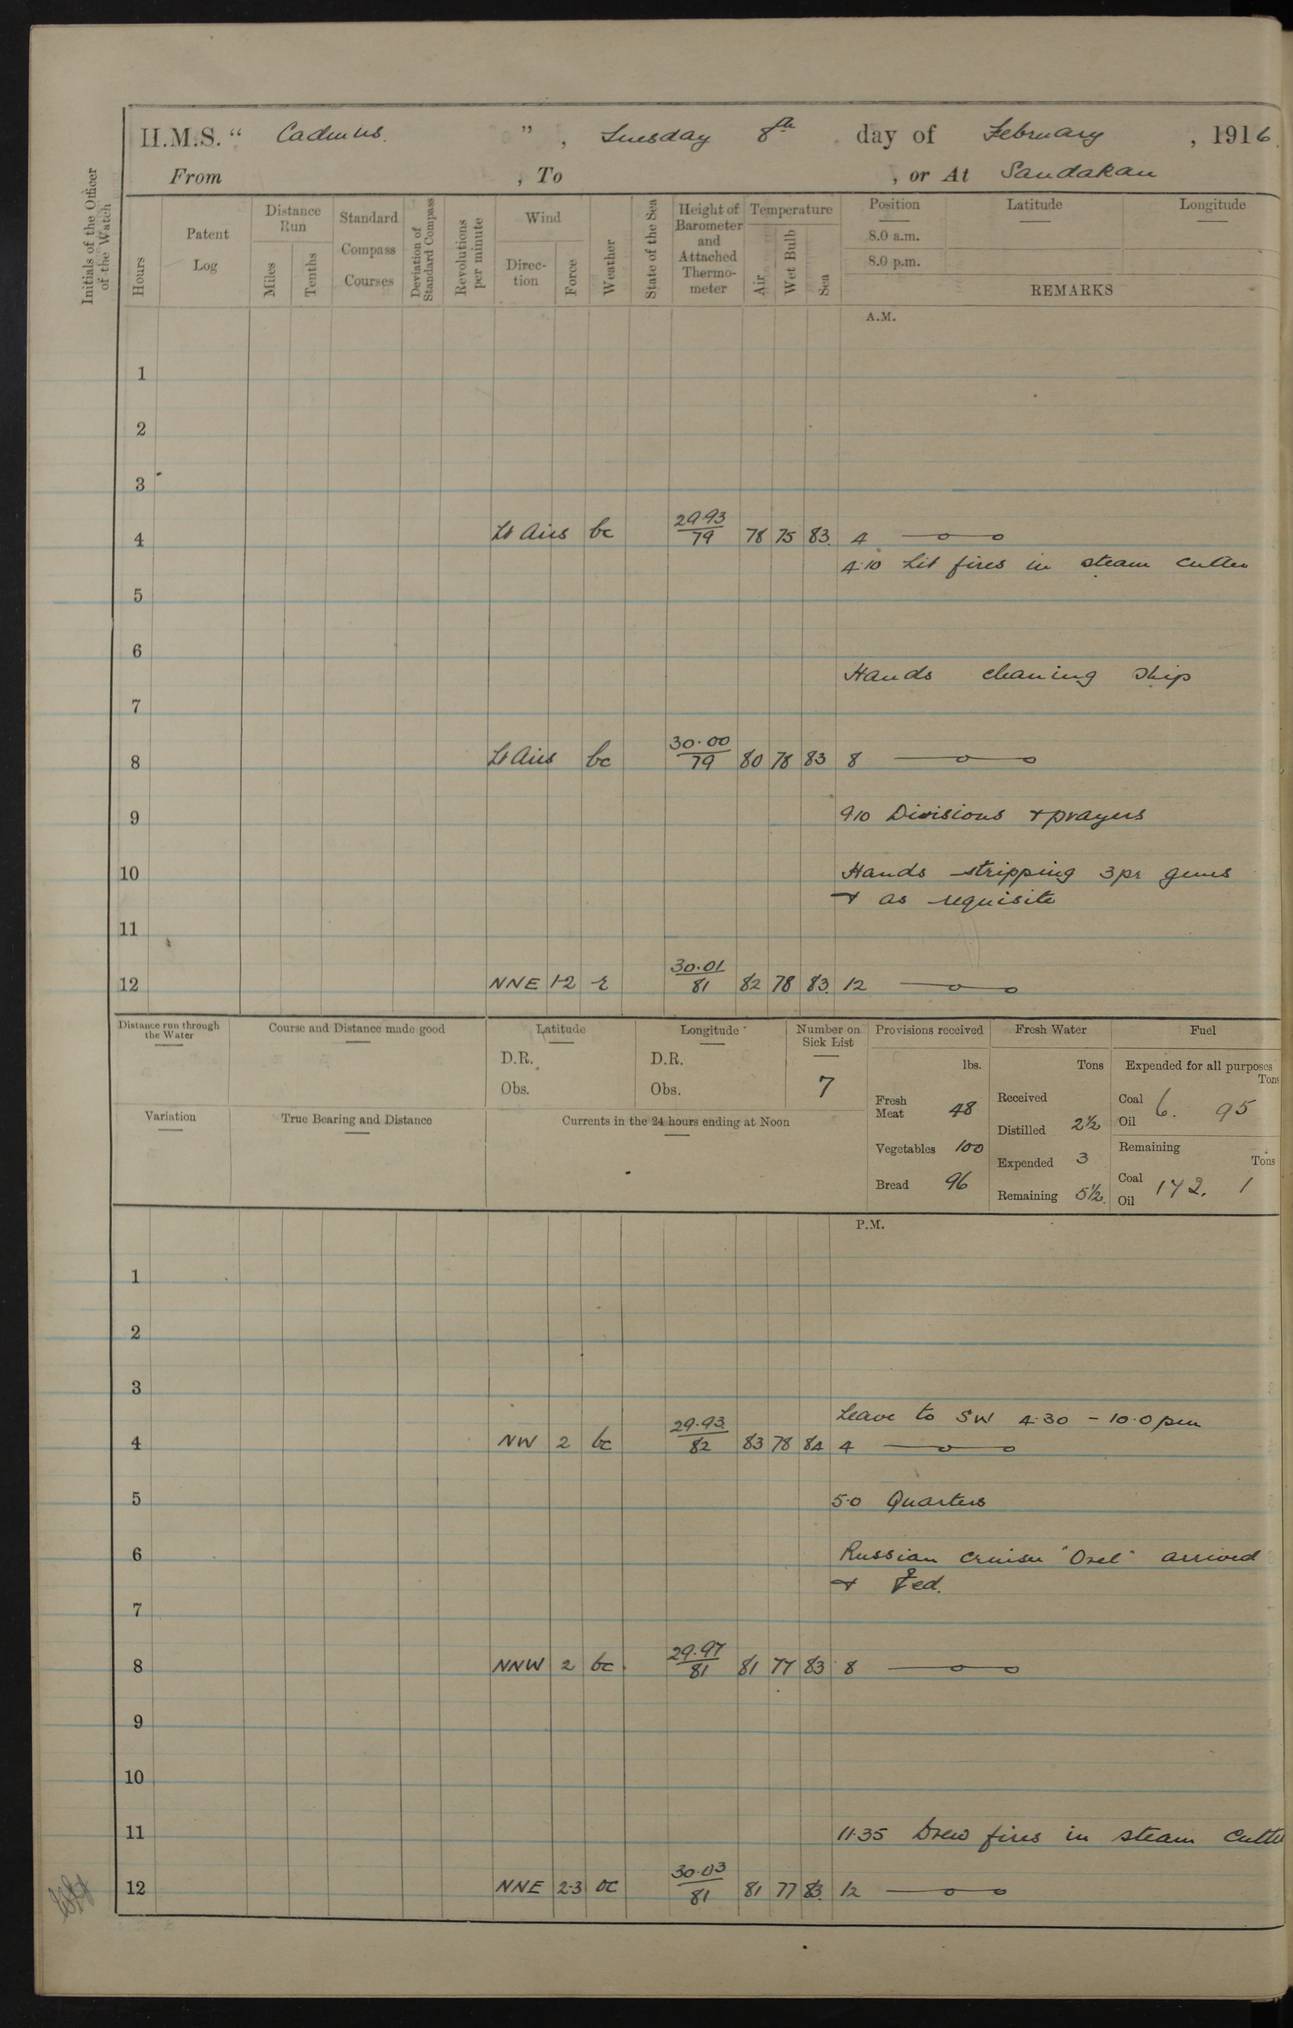 H.M.S. “ Cadmus. ”, Tuesday 8th day of February, 1916.
From , To , or At Sandakan
Initials of the Officer of the Watch
Hours
Patent Log
Distance Run
Miles
Tenths
Standard Compass Courses
Deviation of Standard Compass
Revolutions per minute
Wind
Direction
Force
Weather
State of the Sea
Height of Barometer and Attached Thermometer
Temperature
Air
Wet Bulb
Sea
Position
Latitude
Longitude
8.0 a.m.
8.0 p.m.
REMARKS
A.M.
1
2
3
4 Lt Airs bc 29.93/79 78 75 83. 4
4.10 Lit fires in steam cutter
5
6
Hands cleaning ship
7
8 Lt Airs bc 30.00/79 80 78 83 8
9 910 Divisions + prayers
10 Hands stripping 3pr guns
+ as requisite
11
12 NNE 1-2 r 30.01/81 82 78 83. 12
Distance run through the Water
Course and Distance made good
Latitude
D.R.
Obs.
Longitude
D.R.
Obs.
Number on Sick List
7
Provisions received
lbs.
Fresh Meat 48
Vegetables 100
Bread 96
Fresh Water
Tons
Received
Distilled 2½
Expended 3
Remaining 5½.
Fuel
Expended for all purposes
Tons
Coal 6. 95
Oil
Remaining
Tons
Coal 142. 1
Oil
Variation
True Bearing and Distance
Currents in the 24 hours ending at Noon
P.M.
1
2
3
Leave to SW 4.30 - 10.0 pm
4 NW 2 bc 29.93/82 83 78 84 4
5 5.0 Quarters
6 Russian cruiser "Orel" arrived
+ ⚓ed.
7
8 NNW 2 bc. 29.97/81 81 77 83 8
9
10
11 11.35 Drew fires in steam cutte
12 NNE 2-3 oc 30.03/81 81 77 83. 12